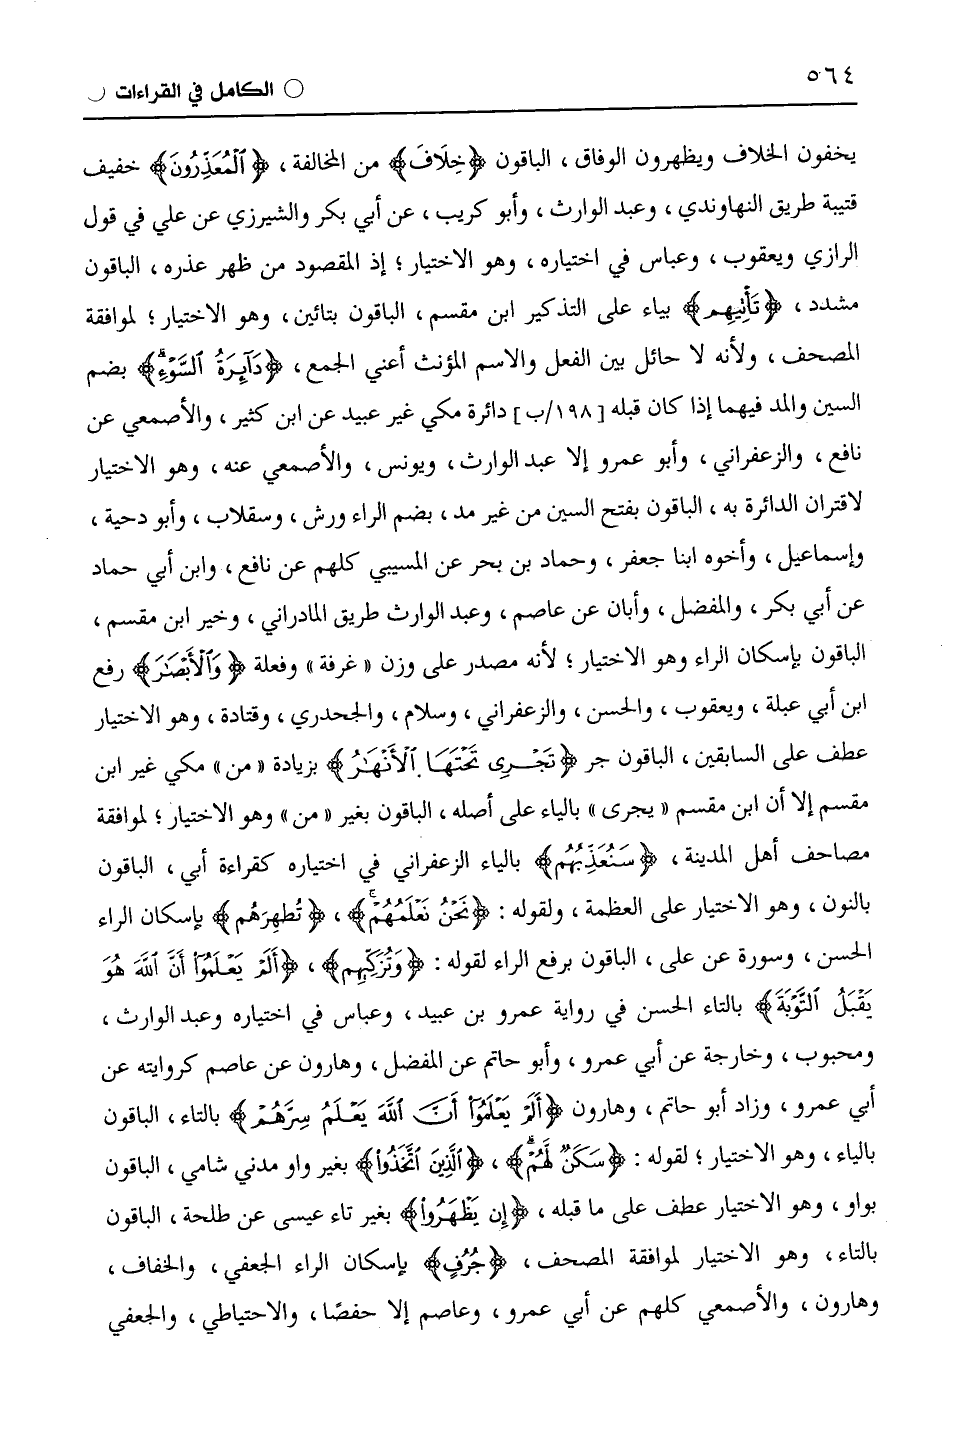 ٥٦٤
○ الكامل في القراءات
يخفون الخلاف ويظهرون الوفاق ، الباقون ﴿خِلَافَ﴾ من المخالفة ، ﴿ٱلْمُعَذِّرُونَ﴾ خفيف
قتيبة طريق النهاوندي ، وعبد الوارث ، وأبو كريب ، عن أبي بكر والشيرزي عن علي في قول
الرازي ويعقوب ، وعباس في اختياره ، وهو الاختيار ؛ إذ المقصود من ظهر عذره ، الباقون
مشدد ، ﴿تَأْتِيهِم﴾ بياء على التذكير ابن مقسم ، الباقون بتائين، وهو الاختيار ؛ لموافقة
المصحف ، ولأنه لا حائل بين الفعل والاسم المؤنث أعني الجمع ، ﴿دَآئِرَةُ ٱلسَّوْءِۗ﴾ بضم
السين والمد فيهما إذا كان قبله [١٩٨/ب] دائرة مكي غير عبيد عن ابن كثير ، والأصمعي عن
نافع ، والزعفراني ، وأبو عمرو إلا عبد الوارث ، ويونس ، والأصمعي عنه ، وهو الاختيار
لاقتران الدائرة به ، الباقون بفتح السين من غير مد ، بضم الراء ورش ، وسقلاب ، وأبو دحية ،
وإسماعيل ، وأخوه ابنا جعفر ، وحماد بن بحر عن المسيبي كلهم عن نافع ، وابن أبي حماد
عن أبي بكر ، والمفضل ، وأبان عن عاصم ، وعبد الوارث طريق المادراني ، وخير ابن مقسم ،
الباقون بإسكان الراء وهو الاختيار ؛ لأنه مصدر على وزن « غرفة » وفعلة ﴿وَٱلْأَبْصَٰرَ﴾ رفع
ابن أبي عبلة ، ويعقوب ، والحسن ، والزعفراني ، وسلام ، والجحدري ، وقتادة ، وهو الاختيار
عطف على السابقين ، الباقون جر ﴿تَجْرِى تَحْتَهَا ٱلْأَنْهَٰرُ﴾ بزيادة « من » مكي غير ابن
مقسم إلا أن ابن مقسم « يجرى » بالياء على أصله ، الباقون بغير « من » وهو الاختيار ؛ لموافقة
مصاحف أهل المدينة ، ﴿سَنُعَذِّبُهُم﴾ بالياء الزعفراني في اختياره كقراءة أبي ، الباقون
بالنون ، وهو الاختيار على العظمة ، ولقوله : ﴿نَحْنُ نَعْلَمُهُمْۚ﴾ ، ﴿تُطَهِّرُهُم﴾ بإسكان الراء
الحسن ، وسورة عن على ، الباقون برفع الراء لقوله : ﴿وَتُزَكِّيهِم﴾ ، ﴿أَلَمْ يَعْلَمُوٓا۟ أَنَّ ٱللَّهَ هُوَ
يَقْبَلُ ٱلتَّوْبَةَ﴾ بالتاء الحسن في رواية عمرو بن عبيد ، وعباس في اختياره وعبد الوارث ،
ومحبوب ، وخارجة عن أبي عمرو ، وأبو حاتم عن المفضل ، وهارون عن عاصم كروايته عن
أبي عمرو ، وزاد أبو حاتم ، وهارون ﴿أَلَمْ يَعْلَمُوٓا۟ أَنَّ ٱللَّهَ يَعْلَمُ سِرَّهُمْ﴾ بالتاء ، الباقون
بالياء ، وهو الاختيار ؛ لقوله : ﴿سَكَنٌ لَّهُمْۗ﴾ ، ﴿ٱلَّذِينَ ٱتَّخَذُوا۟﴾ بغير واو مدني شامي ، الباقون
بواو ، وهو الاختيار عطف على ما قبله ، ﴿إِن يَظْهَرُوا۟﴾ بغير تاء عيسى عن طلحة ، الباقون
بالتاء ، وهو الاختيار لموافقة المصحف ، ﴿جُرُفٍ﴾ بإسكان الراء الجعفي ، والخفاف ،
وهارون ، والأصمعي كلهم عن أبي عمرو ، وعاصم إلا حفصًا ، والاحتياطي ، والجعفي